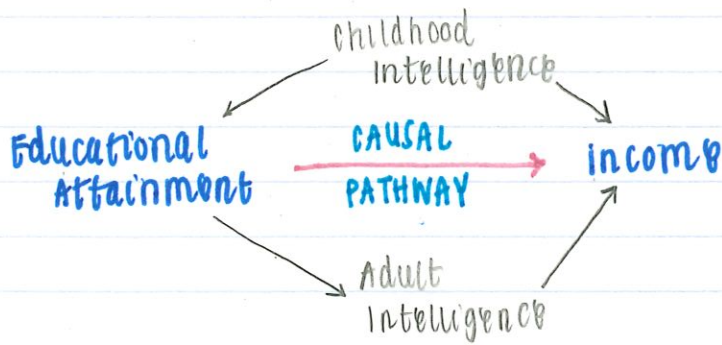 Childhood
Intelligence
Educational
Attainment
CAUSAL
PATHWAY
income
Adult
Intelligence